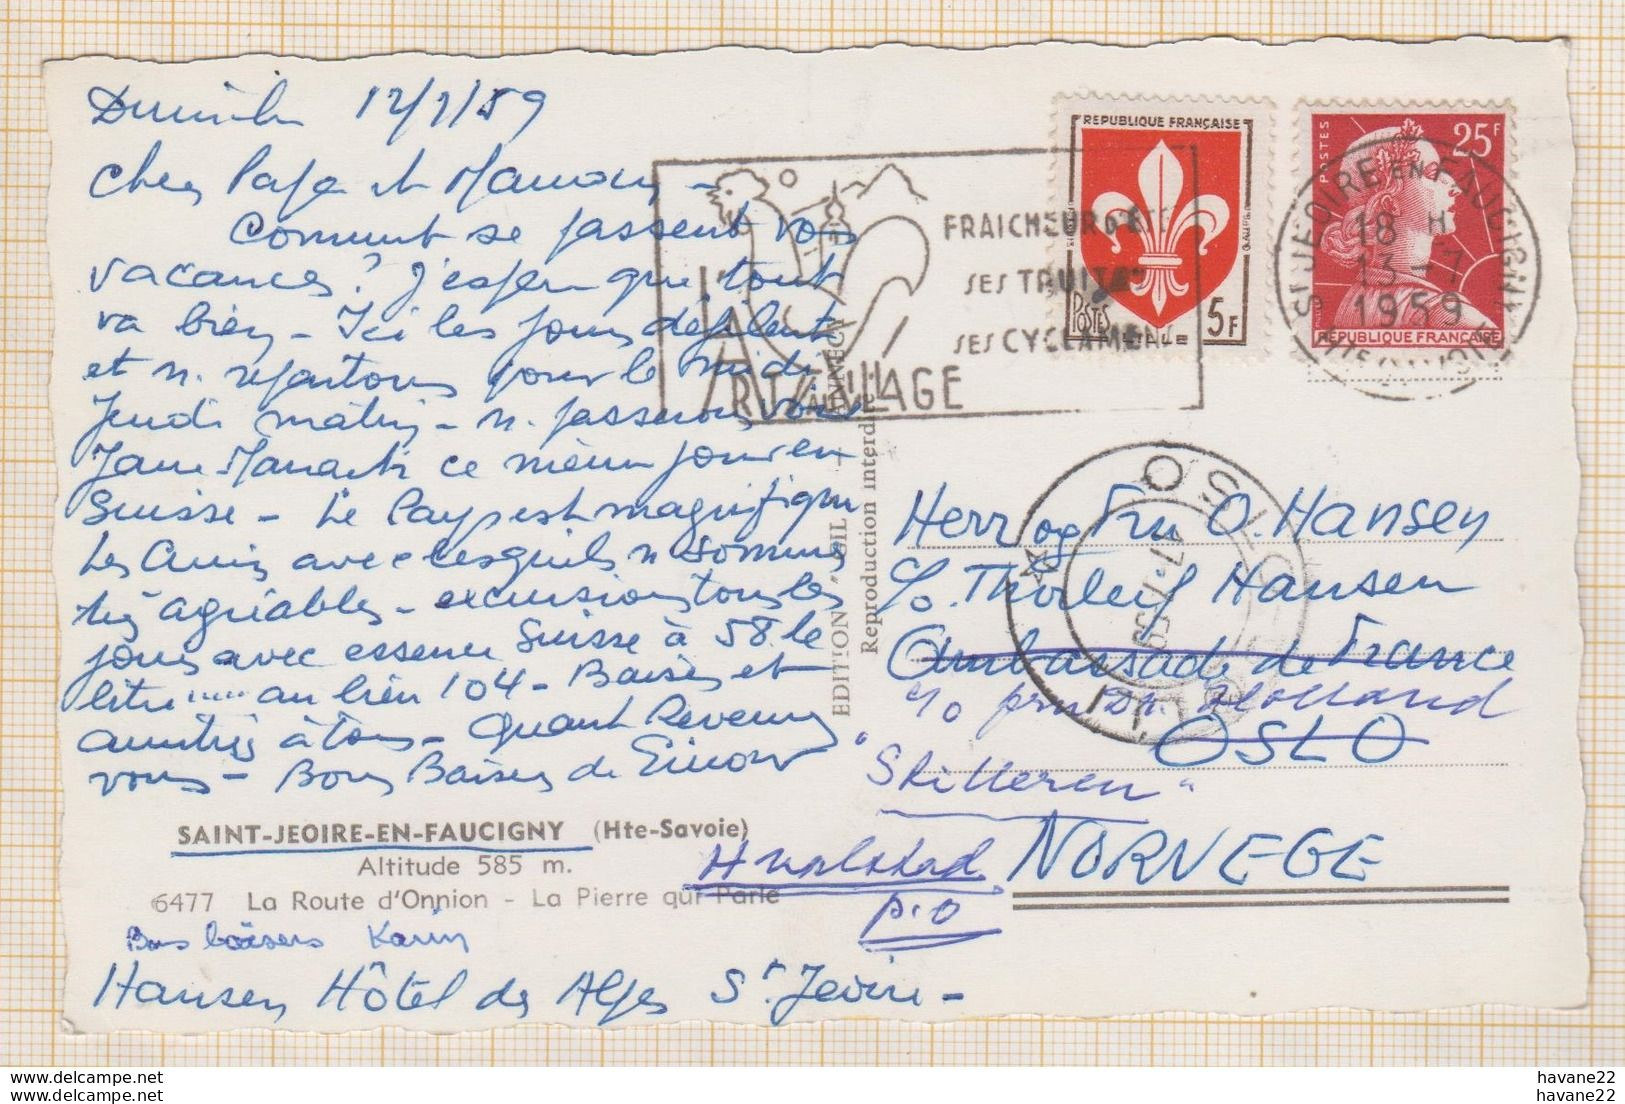 Dimanche 12/7/59
Chers Papa et Maman -
Comment se passent vos
vacances? J'espère que tout
va bien - Ici les jours défilent
et n. repartons pour le Midi
Jeudi matin - n. passerons voir
ce même jour en
Suisse - Le Pays est magnifique
Les Amis avec lesquels n sommes
très agréables - excursions tous les
jours avec essence Suisse à 58 le
litre ..... au lieu 104 - Baisers et
amitiés à tous - Quand Revenez
vous - Bons Baisers de
SAINT-JEOIRE-EN-FAUCIGNY (Hte-Savoie)
Altitude 585 m.
6477 La Route d'Onnion - La Pierre qui Parle
Bons baisers Karin
Hansen Hôtel des Alpes St. Jeoire -
EDITION "GIL" - ANNECY
Reproduction interdite
FRAICHEUR D'ÉTÉ
SES TRUITES
SES CYCLAMENS
REPUBLIQUE FRANÇAISE
POSTES
LILLE
5F
POSTES
25F
REPUBLIQUE FRANÇAISE
ST JEOIRE EN FAUCIGNY
18 H
13-7
1959
HTE SAVOIE
OSLO
17.7.59
Herr og Fru O. Hansen
c/o. Thorleif Hansen
Ambassade de France
c/o Holland
OSLO
"Skitteren"
NORVEGE
Hvalstad
p.o
havane22
havane22
havane22
havane22